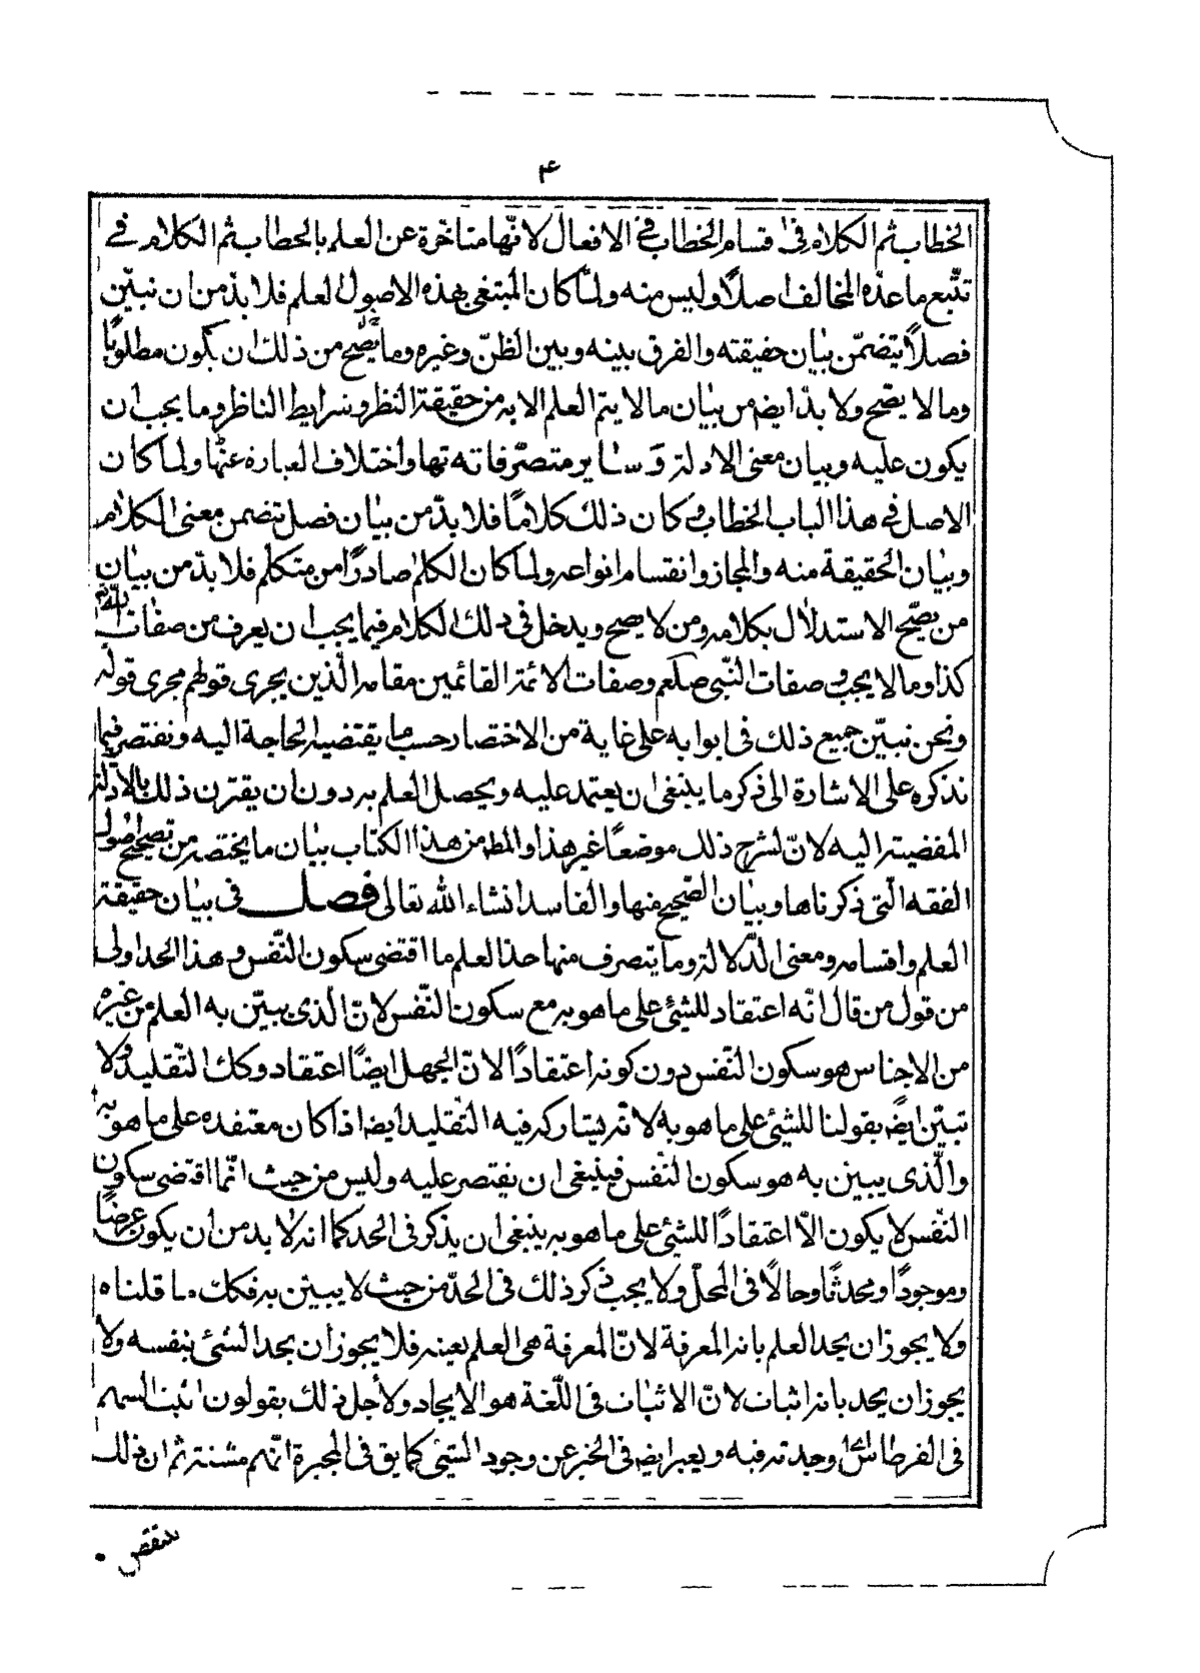 ۴
الخطاب ثم الكلام فى اقسام الخطاب فى الافعال لانّها متاخّرة عن العلم بالخطاب ثم الكلام فے
تتّبع ما عدّه المخالف اصلاً وليس منه ولمّا كان المبتغى بهذه الاصول العلم فلا بدّ من ان نبيّن
فصلاً يتضمّن بيان حقيقته والفرق بينه وبين الظنّ وغيره وما يصّح من ذلك ان يكون مطلوبًا
وما لا يصّح ولا بدّ ايضم من بيان ما لا يتم العلم الا به من حقيقة النظر وشرايط الناظر وما يجب ان
يكون عليه وبيان معنى الادلة وسٰاير متصرّفاته تها واختلاف العباره عنها ولما كان
الاصل فى هذا الباب الخطاب وكان ذلك كلامًا فلا بدّ من بيان فصل تضمن معنى الكلام
وبيان الحقيقة منه والمجاز وانقسام انواعه ولما كان الكلم صادرًا من متكلم فلا بدّ من بيان
من يصّح الاستدلال بكلامه ومن لا يصح ويدخل فى ذلك الكلام فيما يجب ان يعرف من صفات الله
كذا وما لا يجب وصفات النّبى صلعم وصفات الائمة القائمين مقامه الّذين يجرى قولهم مجرى قوله
ونحن نبيّن جميع ذلك فى ابوابه على غاية من الاختصار حسب ما يقتضيه الحاجة اليه ونقتصر فيما
نذكره على الاشارة الى ذكر ما ينبغى ان يعتمد عليه ويحصل العلم به دون ان يقترن ذلك بالادلة
المفضية اليه لانّ لشرح ذلك موضعًا غير هذا والمط من هذا الكتاب بيان ما يختصر من تصحيح اصول
الفقه الّتى ذكرناها وبيان الصّحيح منها والفاسد انشاء الله تعالى فصل فى بيان حقيقة
العلم واقسامه ومعنى الدّلالة وما يتصرف منها حد العلم ما اقتضى سكون النّفس وهذا الحد اولى
من قول من قال انّه اعتقاد للشيئ على ما هو به مع سكون النّفس لانّ الّذى يبيّن به العلم من غيره
من الاجناس هو سكون النّفس دون كونه اعتقادًا لانّ الجهل ايضًا اعتقاد وكك التّقليد ولا
تبيّن ايضًا بقولنا للشيئ على ما هو به لانّه يشاركه فيه التّقليد ايضا اذا كان معتقده على ما هو به
والّذى يبين به هو سكون النّفس فينبغى ان يقتصر عليه وليس من حيث انّما اقتضى سكون
النّفس لا يكون الّا اعتقادًا للشيئ على ما هو به ينبغى ان يذكر فى الحد كما انه لا بد من ان يكون عرضًا
وموجودًا ومحدثًا وحالًا فى المحلّ ولا يجب ذكر ذلك فى الحدّ من حيث لا يبيّن به فكك ما قلناه
ولا يجوز ان يحد العلم بانه المعرفة لانّ المعرفة هى العلم بعينه فلا يجوز أن يحد الشئ بنفسه ولا
يجوز ان يحد بانه اثبات لانّ الاثبات فى اللّغة هو الايجاد ولاجل ذلك يقولون اثبت السهم
فى القرطاس اى اوجدته فيه ويعبر ايضه فى الخبر عن وجود الشيئ كما يق فى المجبرة انّهم مثبتة ثم ان ذلك
ينتقض